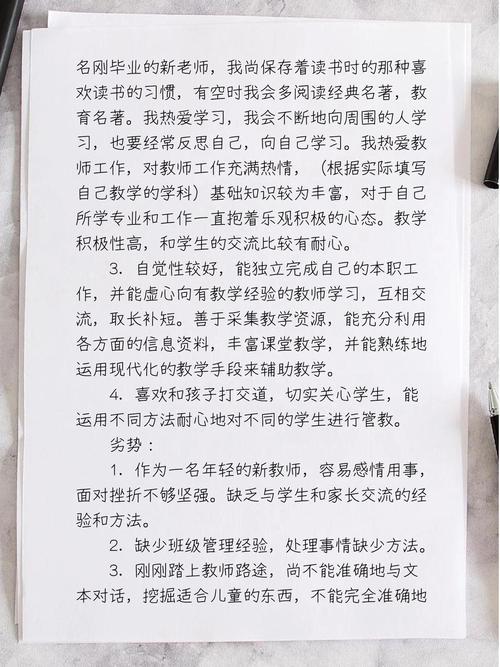 名刚毕业的新老师，我尚保存着读书时的那种喜
欢读书的习惯，有空时我会多阅读经典名著，教
育名著。我热爱学习，我会不断地向周围的人学
习，也要经常反思自己，向自己学习。我热爱教
师工作，对教师工作充满热情，（根据实际填写
自己教学的学科）基础知识较为丰富，对于自己
所学专业和工作一直抱着乐观积极的心态。教学
积极性高，和学生的交流比较有耐心。
3．自觉性较好，能独立完成自己的本职工
作，并能虚心向有教学经验的教师学习，互相交
流，取长补短。善于采集教学资源，能充分利用
各方面的信息资料，丰富课堂教学，并能熟练地
运用现代化的教学手段来辅助教学。
4．喜欢和孩子打交道，切实关心学生，能
运用不同方法耐心地对不同的学生进行管教。
劣势：
1．作为一名年轻的新教师，容易感情用事，
面对挫折不够坚强。缺乏与学生和家长交流的经
验和方法。
2．缺少班级管理经验，处理事情缺少方法。
3．刚刚踏上教师路途，尚不能准确地与文
本对话，挖掘适合儿童的东西，不能完全准确地